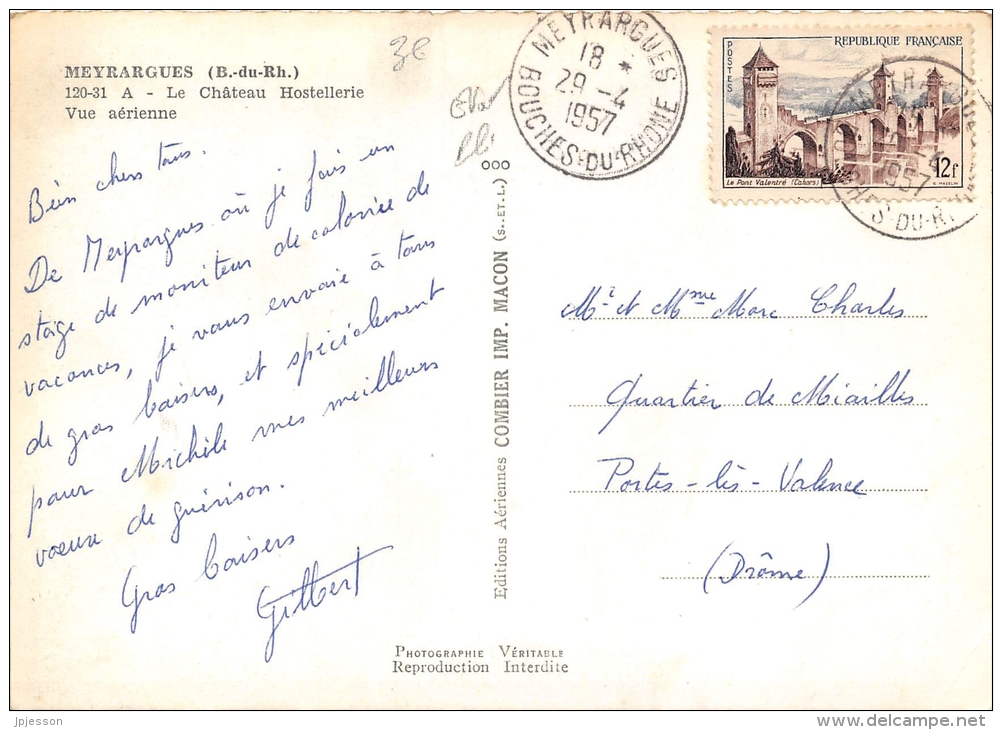 MEYRARGUES (B.-du-Rh.)
120-31 A - Le Château Hostellerie
Vue aérienne
3€
MEYRARGUES
18 *
29 -4
1957
BOUCHES-DU-RHONE
POSTES
REPUBLIQUE FRANÇAISE
Le Pont Valentré (Cahors)
12f
1957
Bien chers tous.
De Meyrargues où je fais un
stage de moniteur de colonie de
vacances, je vous envoie à tous
de gros baisers, et spécialement
pour Michèle mes meilleurs
voeux de guérison.
Gros baisers
Gilbert
Editions Aériennes COMBIER IMP. MACON (S.-ET-L.)
Mr et Mme Marc Charles
Quartier de Miailles
Portes-lès-Valence
(Drôme)
PHOTOGRAPHIE VÉRITABLE
Reproduction Interdite
jpjesson
delcampe.net